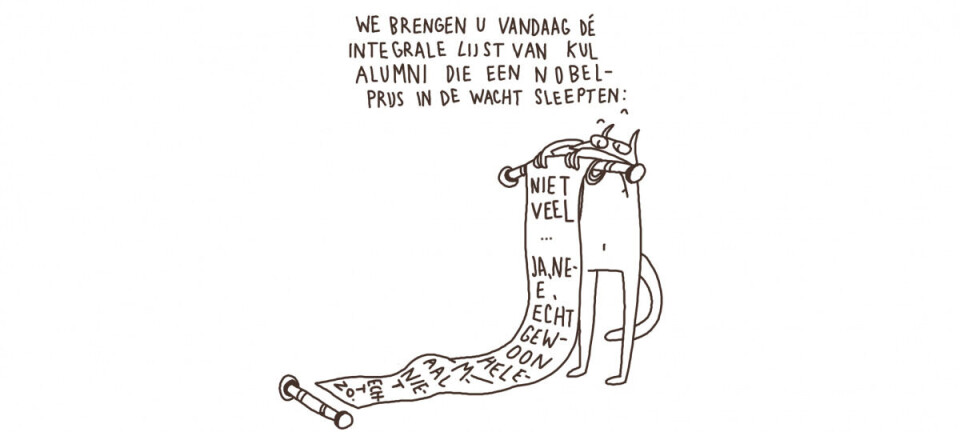 WE BRENGEN U VANDAAG DÉ
INTEGRALE LIJST VAN KUL
ALUMNI DIE EEN NOBEL-
PRIJS IN DE WACHT SLEEPTEN:
NIET
VEEL
...
JA, NE-
E,
ECHT
GEW-
OON
HELE-
M...
AAL
NIE-
T
ECH
T
ZO.